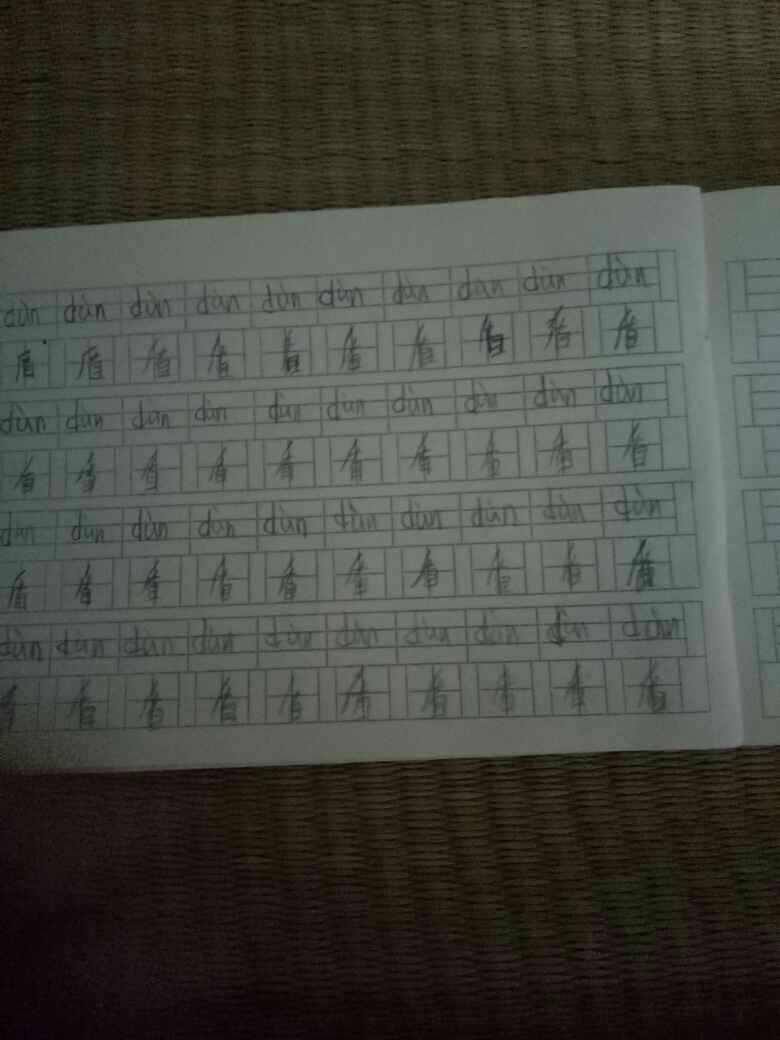 dùn dùn dùn dùn dùn dùn dùn dùn dùn dùn
盾 盾 盾 盾 盾 盾 盾 盾 盾 盾
dùn dùn dùn dùn dùn dùn dùn dùn dùn dùn
盾 盾 盾 盾 盾 盾 盾 盾 盾 盾
dùn dùn dùn dùn dùn dùn dùn dùn dùn dùn
盾 盾 盾 盾 盾 盾 盾 盾 盾 盾
dùn dùn dùn dùn dùn dùn dùn dùn dùn dùn
盾 盾 盾 盾 盾 盾 盾 盾 盾 盾